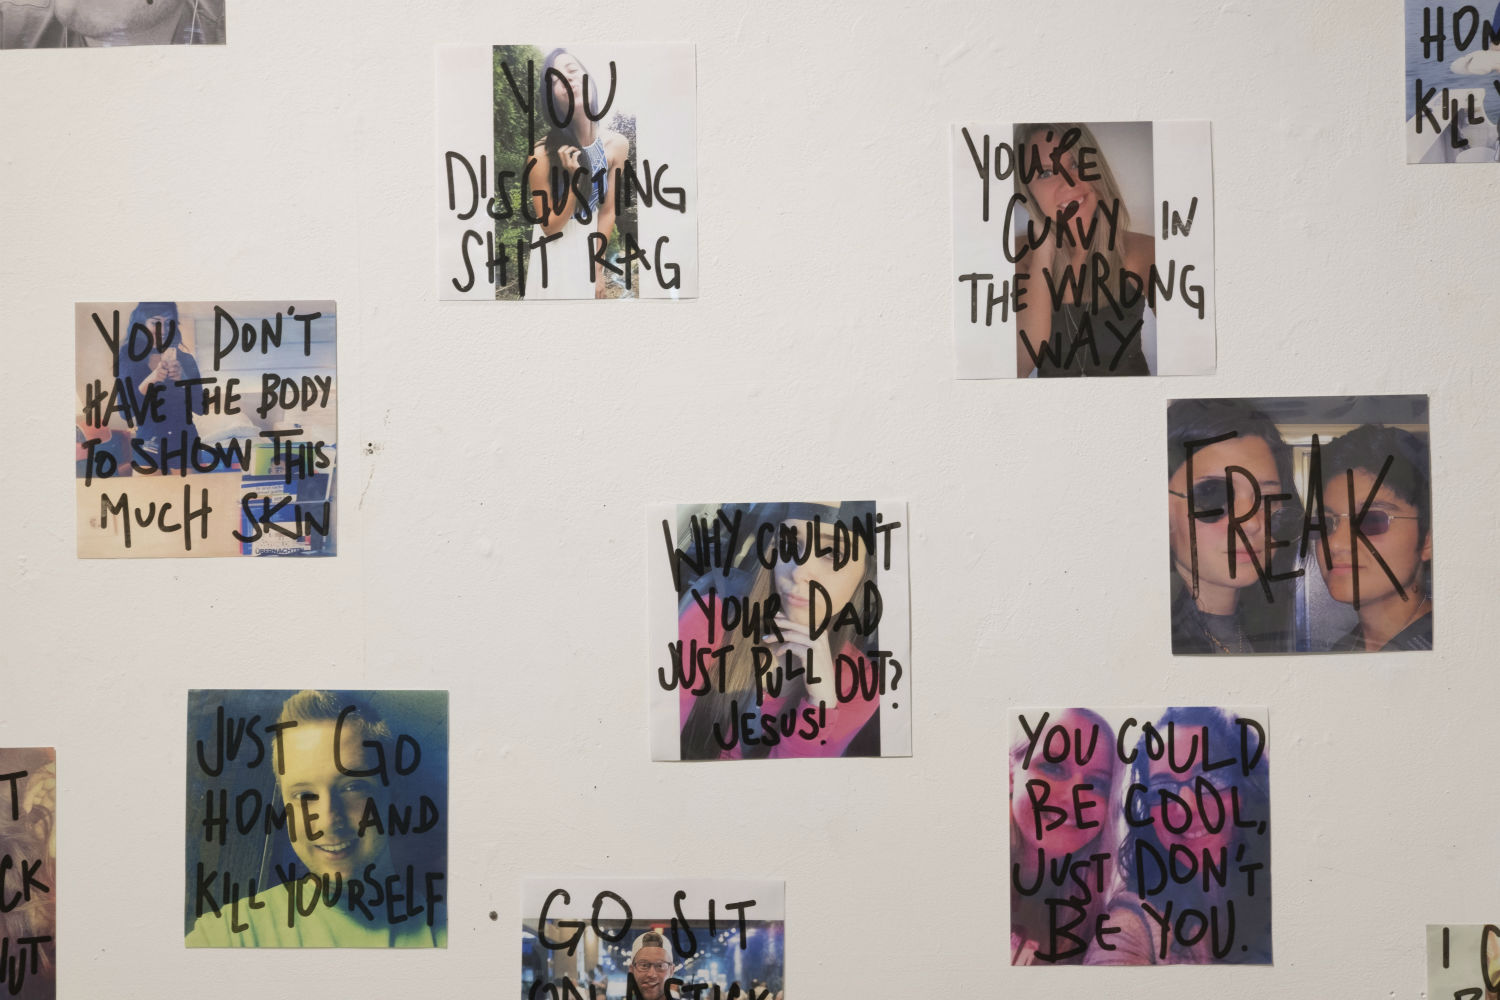 HOM
KILL Y
YOU
DISGUSTING
SHIT RAG
YOU'RE
CURVY IN
THE WRONG
WAY
YOU DON'T
HAVE THE BODY
TO SHOW THIS
MUCH SKIN
ÜBERNACHTEN
FREAK
WHY COULDN'T
YOUR DAD
JUST PULL OUT?
JESUS!
JUST GO
HOME AND
KILL YOURSELF
YOU COULD
BE COOL,
JUST DON'T
BE YOU.
T
CK
GO SIT
ON A STICK
I